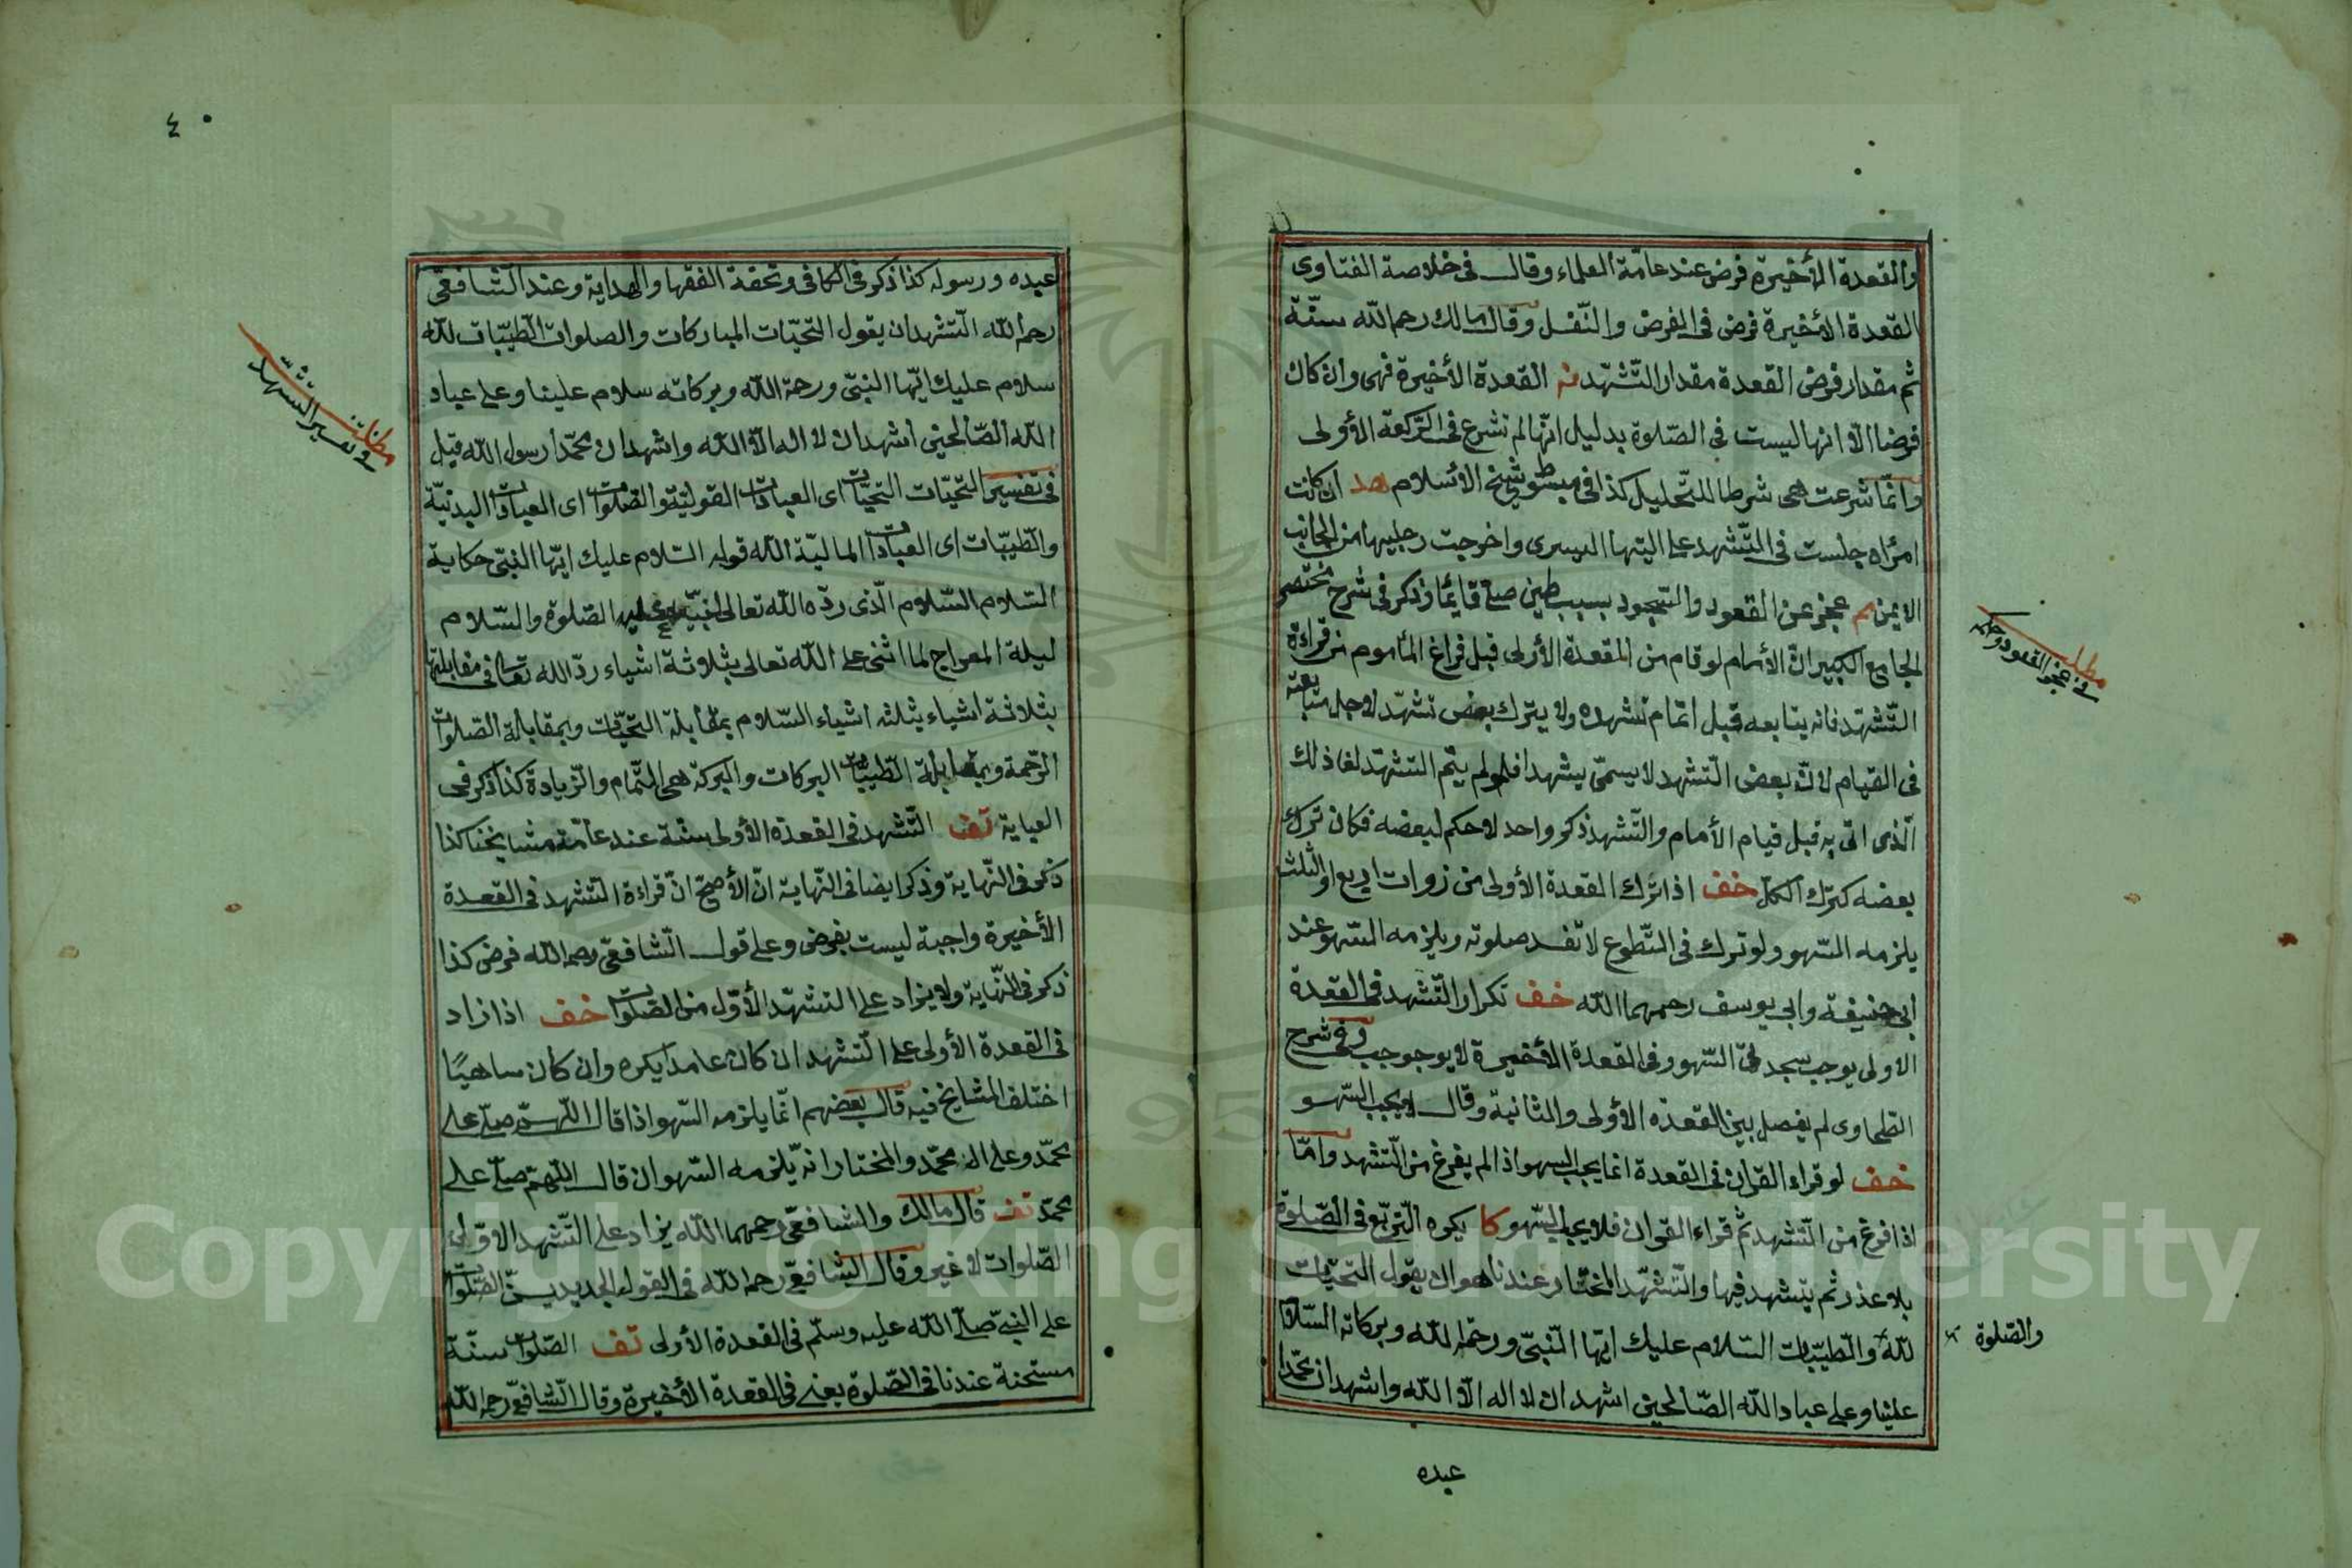 والقعدة الأخيرة فرض عند عامّة العلماء وقال في خلاصة الفتاوى
القعدة الأخيرة فرض في الفرض والنّفل وقال مالك رحم الله سنّة
ثم مقدار فرض القعدة مقدار التّشهّد نه القعدة الأخيرة فهى وان كان
فرضا الّا انها ليست في الصّلوة بدليل انّها لم تشرع في الرّكعة الأولى
وانّما شرعت هى شرطا للتّحليل كذا في مبسوط شيخ الأسلام هد ان كانت
امرأة جلست في التّشهد على اليتها اليسرى واخرجت رجليها من الجانب
الايمن م عجز عن القعود والسّجود بسبب طين صلّى قائما وذكر في شرح مختصر
الجامع الكبير انّ الأمام لو قام من القعدة الأولى قبل فراغ المأموم من قراءة
التّشهّد فانه يتابعه قبل اتمام تشهده ولا يترك بعض تشهّد لاجل متابعته
في القيام لانّ بعض التّشهد لا يسمّى بشهدا فلو لم يتم التشهّد لغا ذلك
الّذى اتى به قبل قيام الأمام والتّشهد ذكر واحد لا حكم لبعضه فكان ترك
بعضه كترك الكلّ خف اذا ترك القعدة الأولى من زوات اربع او الثلث
يلزمه السّهو ولو ترك في التّطوع لا تفسد صلوته ويلزمه السّهو عند
ابي حنيفة وابي يوسف رحمهما الله خف تكرار التّشهد في القعدة
الاولى يوجب سجدتى السّهو وفي القعدة الأخيرة لا يوجوجب وفي شرح
الطحاوى لم يفصل بين القعدة الأولى والثانية وقال لا يجب السّهو
خف لو قراء القران في القعدة انما يجب السهو اذا لم يفرغ من التّشهد وامّا
اذا فرغ من التّشهد ثمّ قراء القران فلا يجب السّهو كا يكره التّربّع في الصّلوة
بلا عذر ثم يتشهد فيها والتّشهّد المختار عندنا هو ان يقول التحيّات
لله والطيّبات السّلام عليك ايّها النّبىّ ورحمة الله وبركاته السّلام
علينا وعلى عباد الله الصّالحين اشهد ان لا اله الّا الله واشهد ان محمّدا
عبده
مطلب
في عجز القعود وحكمه
والصّلوة
٤٠
عبده ورسوله كذا ذكر في الكافي وتحفة الفقها والهداية وعند الشّافعىّ
رحم الله التّشهد ان يقول التحيّات المباركات والصلوات الطيّبات لله
سلام عليك ايّها النبىّ ورحمة الله وبركاته سلام علينا وعلى عباد
الله الصّالحين اشهد ان لا اله الّا الله واشهد ان محمّدا رسول الله قيل
في تفسير التّحيّات التحيّات اى العبادات القوليّة والصّلوات اى العبادات البدنيّة
والطّيبّات اى العبادات الماليّة لله قوله السّلام عليك ايّها النّبىّ حكاية
السّلام السّلام الّذى ردّه الله تعالى لنبيّه عليه الصّلوة والسّلام
ليلة المعراج لما اثنى على الله تعالى بثلاثة اشياء ردّ الله تعالى في مقابلتها
بثلاثة اشياء بثلثه اشياء السّلام بمقابلة التحيّات وبمقابلة الصّلوات
الرّحمة وبمقابلة الطّيبات البركات والبركة هى التّمام والزّيادة كذا ذكر في
العناية تف التّشهد في القعدة الأولى سنّة عند عامّة مشايخنا كذا
ذكر في النّهاية وذكر ايضا في النّهاية انّ الأصحّ انّ قراءة التّشهد في القعدة
الأخيرة واجبة ليست بفرض وعلى قول الشّافعىّ رحمه الله فرض كذا
ذكر في النّهاية ولا يزاد على التشهّد الأوّل من الصّلوات خف اذا زاد
في القعدة الأولى على التّشهد ان كان عامدا يكره وان كان ساهيًا
اختلف المشايخ فيه قال بعضهم انّما يلزمه السّهو اذا قال اللّهمّ صلّ على
محمّد وعلى ال محمّد والمختار انّه يلزمه السّهو ان قال اللّهمّ صلّ على
محمّد تف قال مالك والشافعىّ رحمهما الله يزاد على التّشهد الاوّل
الصّلوات لا غير وقال الشافعىّ رحمه الله في القول الجديد يسنّ الصّلوات
على النبىّ صلّى الله عليه وسلّم في القعدة الأولى تف الصّلوات سنّة
مستحبة عندنا في الصّلوة يعنى في القعدة الأخيرة وقال الشّافعىّ رحمه الله
مطلب
في تفسير التشهد
Copyright © King Saud University